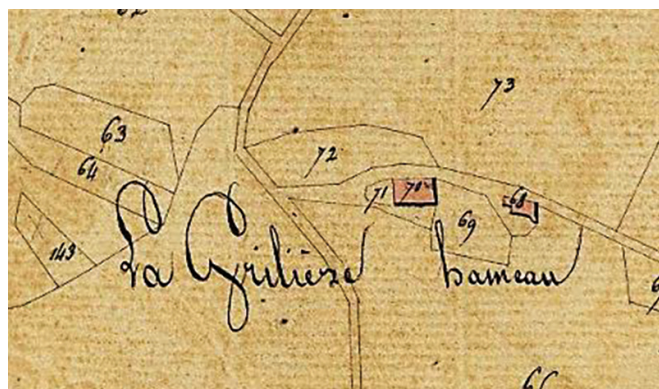 73
63
72
64
71 70
68
69
143
La Grilière hameau
66